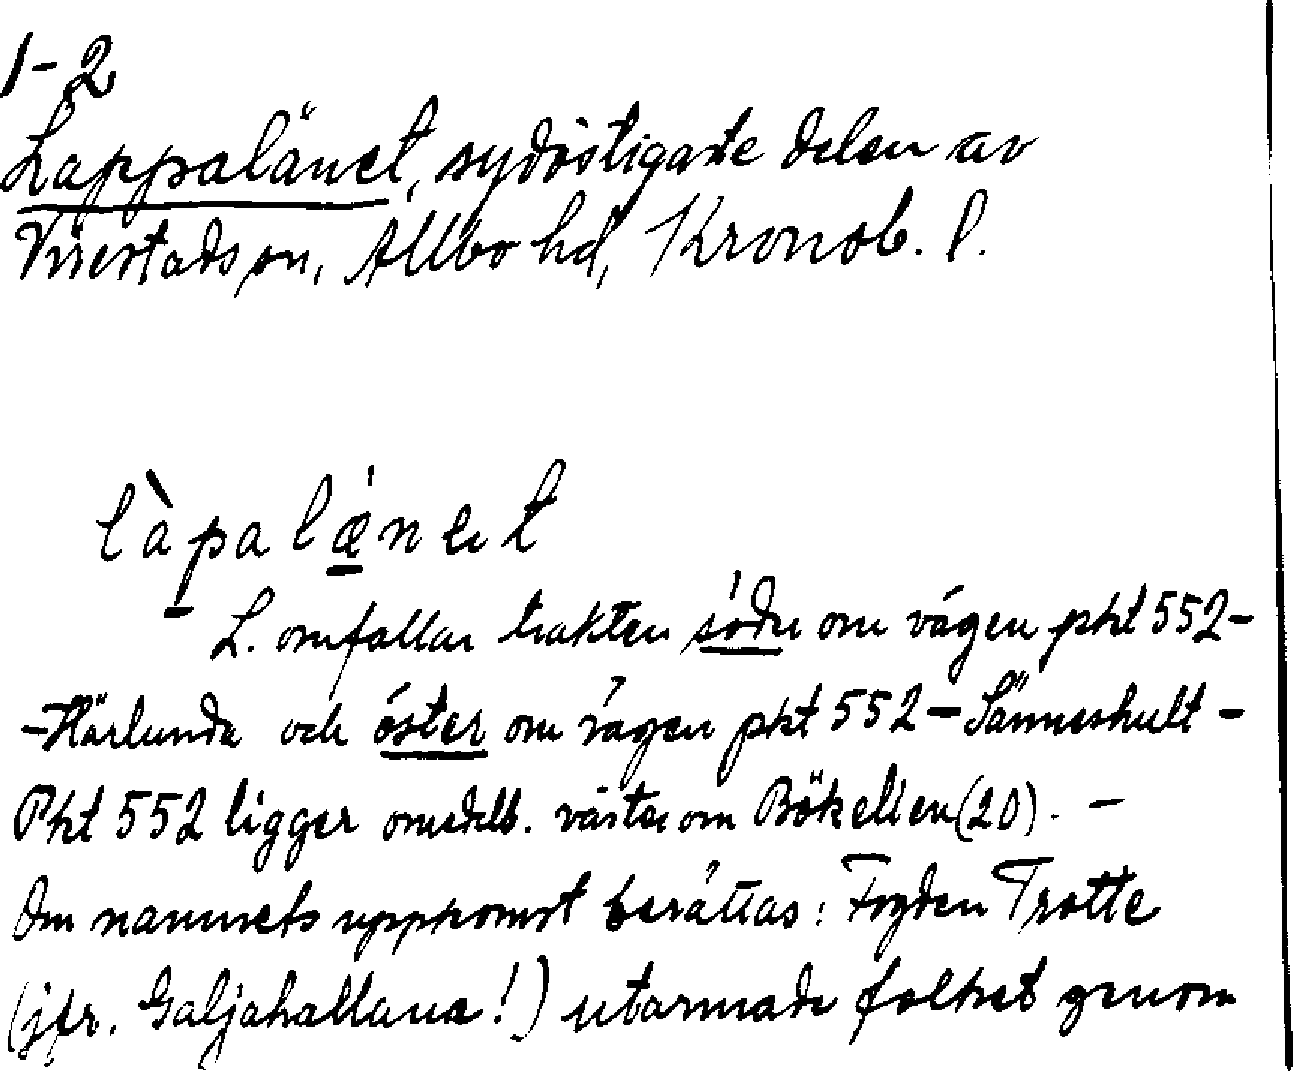 1-2
Lappalänet, sydöstigaste delen av
Virestads sn, Allbo hd, Kronob. l.
làpalǽnet
L. omfattar trakten söder om vägen pkt 552-
-Härlunda och öster om vägen pkt 552 - Sänneshult -
Pkt 552 ligger omedelb. väster om Bökelien (20). -
Om namnets uppkomst berättas: Fogden Trotte
(jfr. Galjahallana!) utarmade folket genom